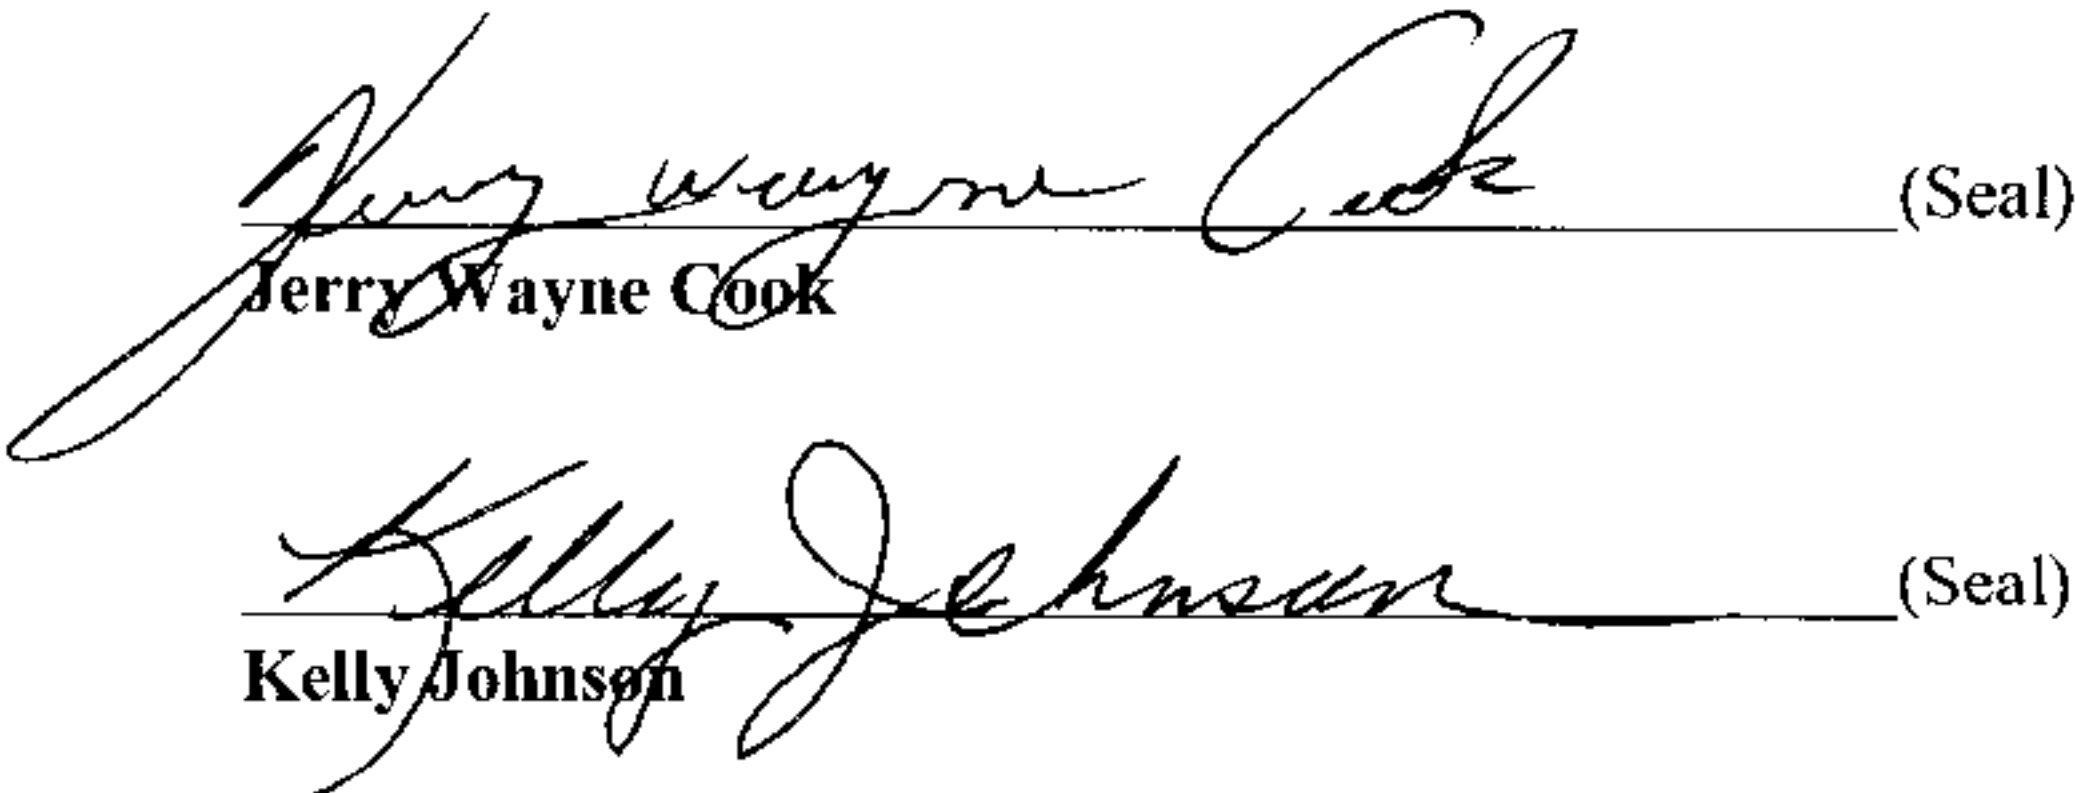 Jerry Wayne Cook (Seal)
Jerry Wayne Cook
Kelly Johnson (Seal)
Kelly Johnson